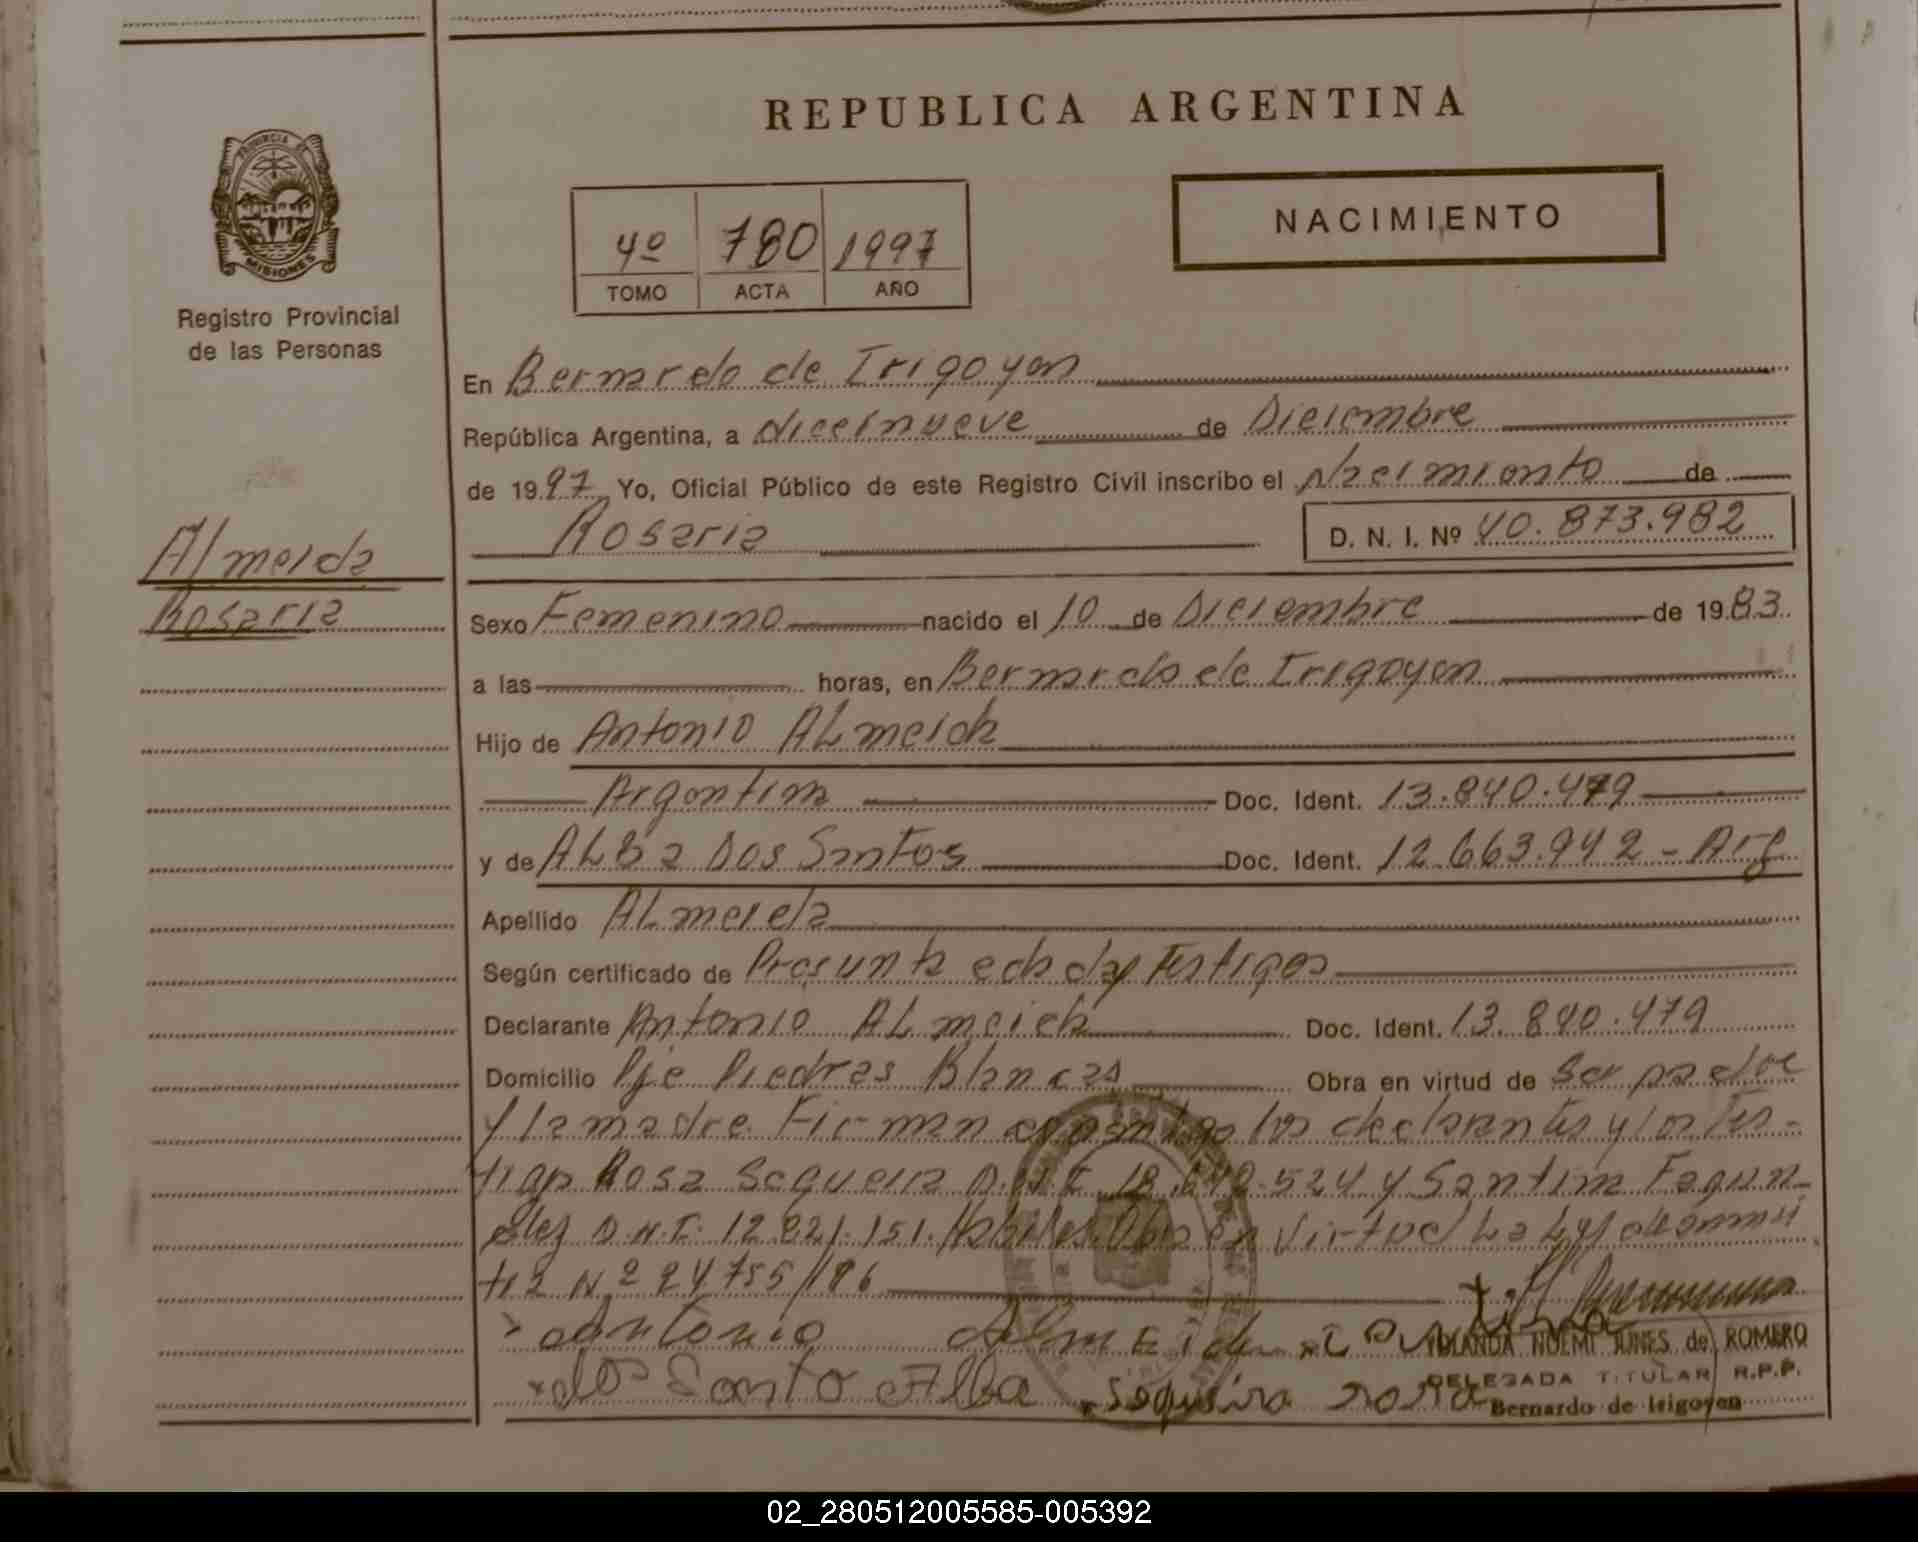 REPUBLICA ARGENTINA
PROVINCIA DE
MISIONES
Registro Provincial
de las Personas
4º 780 1997
TOMO ACTA AÑO
NACIMIENTO
En Bernardo de Irigoyen
República Argentina, a diecinueve de Diciembre
de 1997 Yo, Oficial Público de este Registro Civil inscribo el Nacimiento de
Rosaria D. N. I. Nº 40.873.982
Almeida
Rosaria
Sexo Femenino nacido el 10 de Diciembre de 1983
a las horas, en Bernardo de Irigoyen
Hijo de Antonio ALmeida
Argentina Doc. Ident. 13.840.479
y de ALBa Dos Santos Doc. Ident. 12.663.942 - Arg
Apellido ALmeida
Según certificado de Presunta edad y Testigos
Declarante Antonio ALmeida Doc. Ident. 13.840.479
Domicilio Pje Piedras Blancas Obra en virtud de Ser padre
y la madre. Firman conmigo los declarantes y los Tes-
tigos Rosa Sequeira D.N.I. 18.640.524 y Santina Fagun-
dez D.N.I. 12.821.151. Habiles. Obra en Virtud La Ley
Nº 24755/96
Antonio Almeida
dos Santo Alba Sequeira rosa
YOLANDA NOEMI JUNES de ROMERO
DELEGADA TITULAR R.P.P.
Bernardo de Irigoyen
02_280512005585-005392